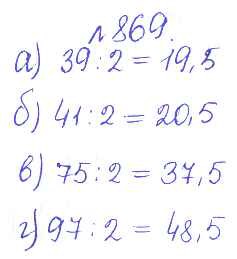 №869.
а) 39:2 = 19,5
б) 41:2 = 20,5
в) 75:2 = 37,5
г) 97:2 = 48,5